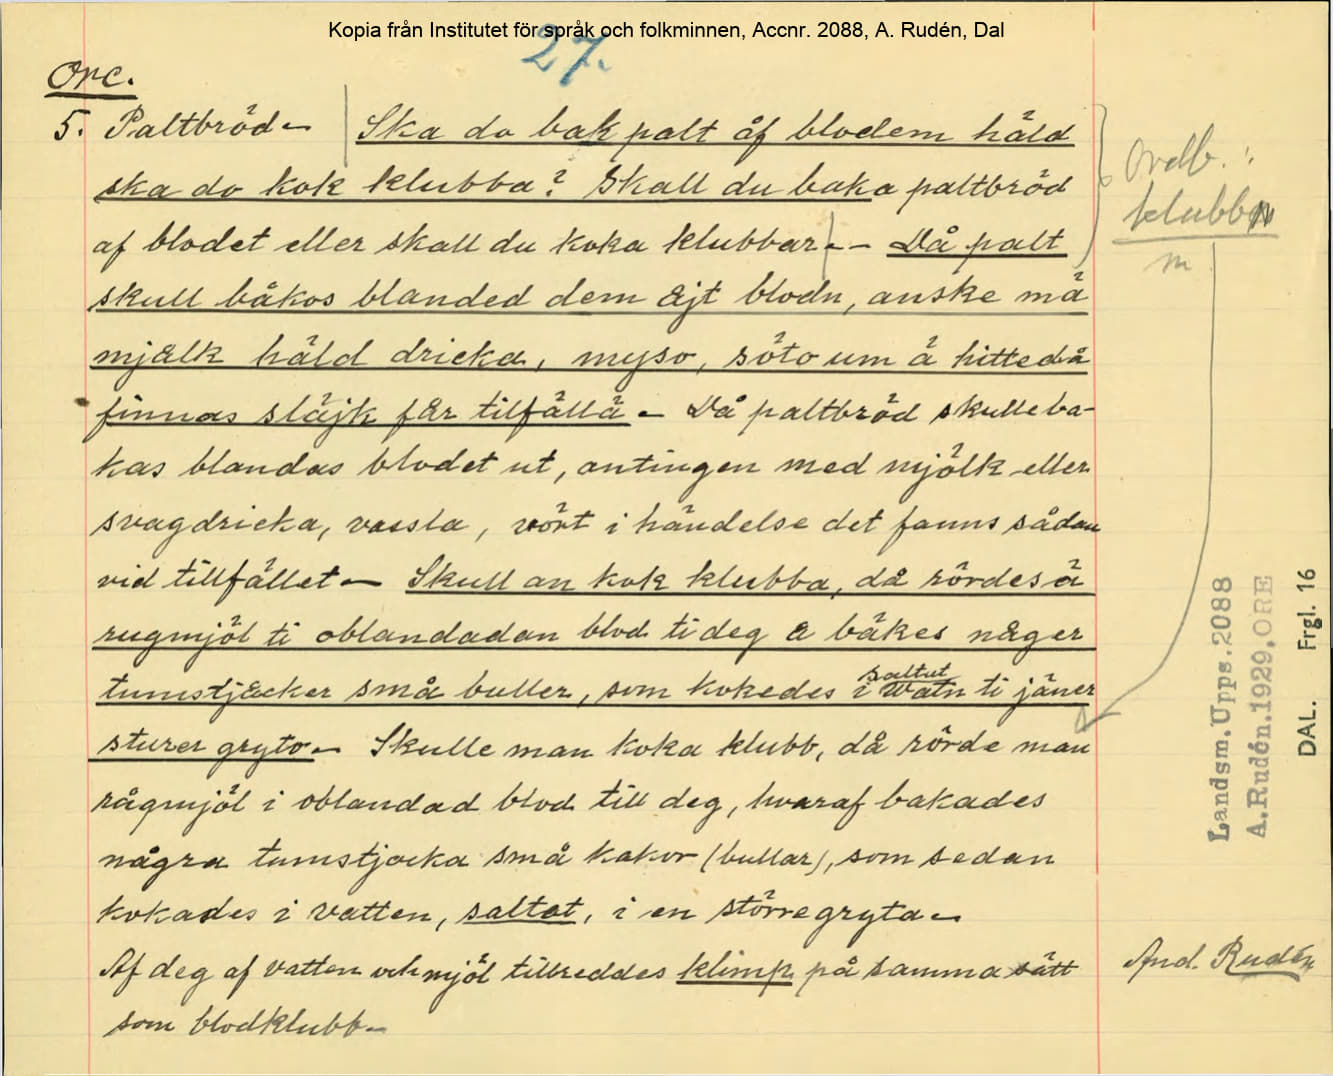 Kopia från Institutet för språk och folkminnen, Accnr. 2088, A. Rudén, Dal
27.
Ore.
5. Paltbröd – Ska do bak palt åf blodem häld
ska do kok klubba? Skall du baka paltbröd
af blodet eller skall du koka klubbar – – Då palt
skull båkos blanded dem äjt blodn, anske mä
mjälk häld dricka, myso, söto um ä hitte då
finnas släjk får tilfällä – Då paltbröd skulle ba-
kas blandas blodet ut, antingen med mjölk eller
svagdricka, vassla, vört i händelse det fanns sådan
vid tillfället – Skull an kok klubba, då rördes ä
rugmjöl ti oblandadan blod ti deg å båkes någer
tumstjåcker små buller, som kokedes i saltut watn ti jäner
sturer gryto – Skulle man koka klubb, då rörde man
rågmjöl i oblandad blod till deg, hvaraf bakades
några tumstjocka små kakor (bullar), som sedan
kokades i vatten, saltat, i en större gryta –
Af deg af vatten och mjöl tillreddes klimp på samma sätt
som blodklubb –
Ordb.:
klubba
m.
Landsm. Upps. 2088
A. Rudén. 1929, ORE
DAL. Frgl. 16
And. Rudén